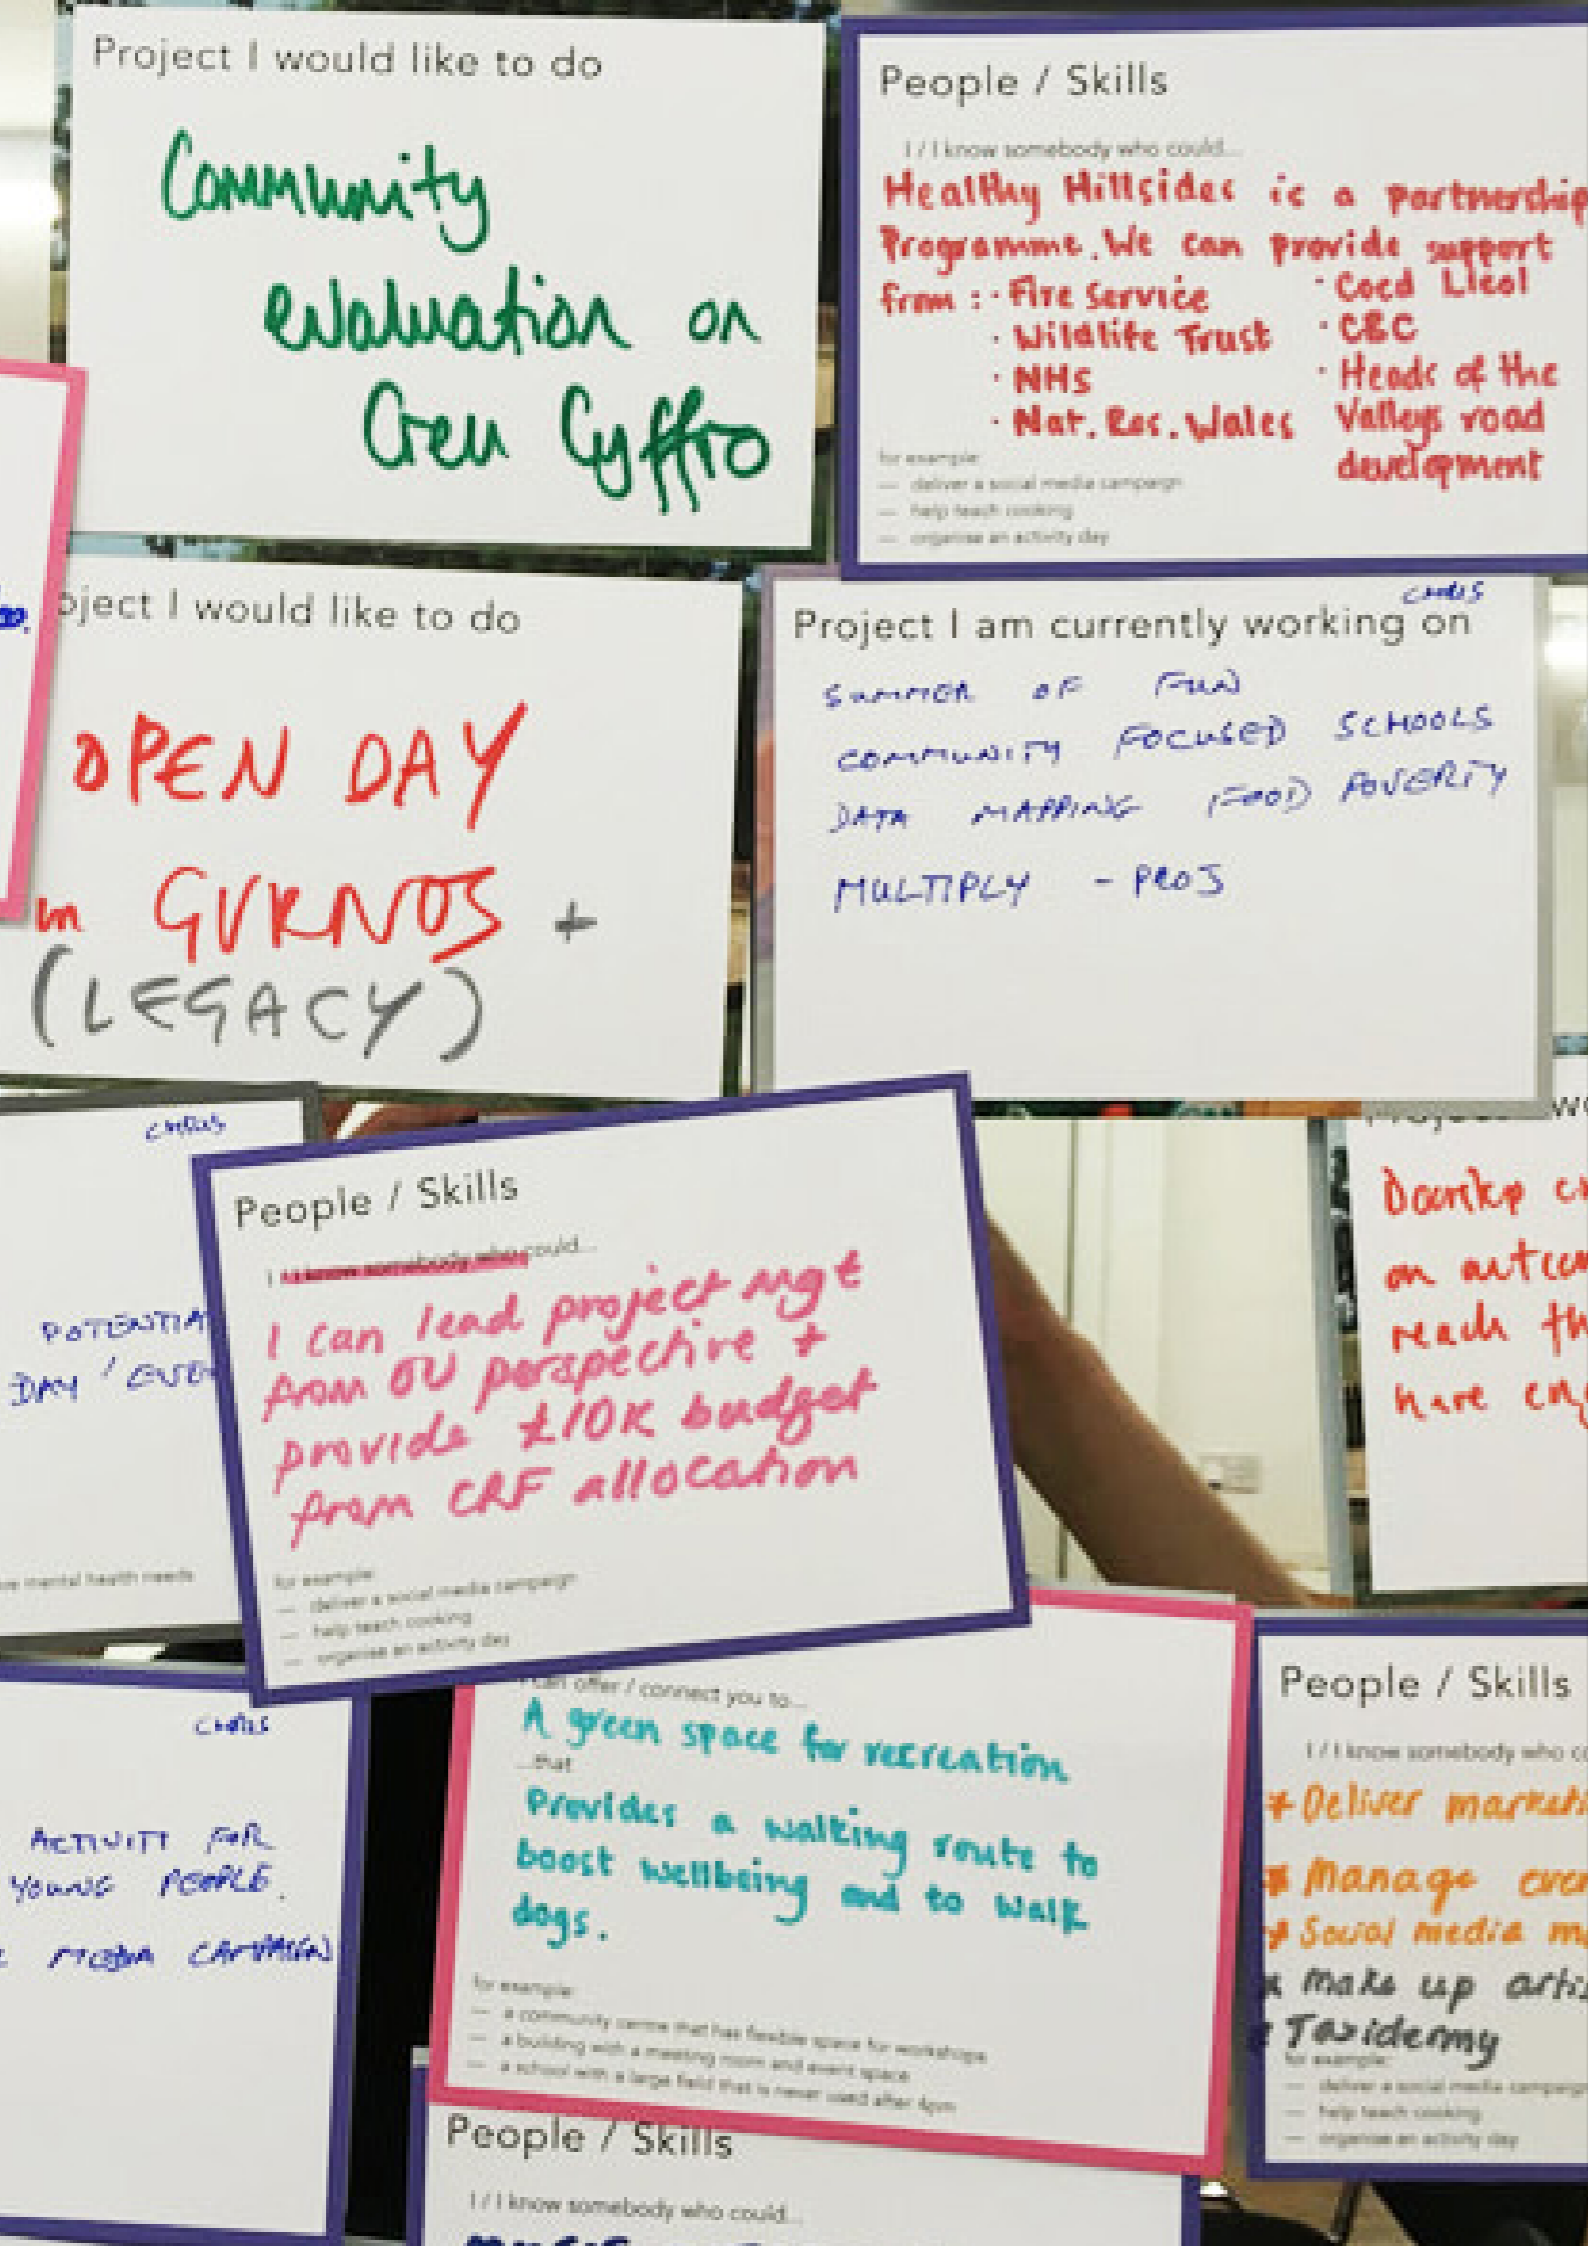 Project I would like to do
Community
evaluation on
Creu Cyffro
People / Skills
I / I know somebody who could...
Healthy Hillsides is a partnership
Programme. We can provide support
from : · Fire Service
· Wildlife Trust
· NHS
· Nat. Res. Wales
· Coed Lleol
· CBC
· Heads of the
Valleys road
development
for example:
— deliver a social media campaign
— help teach cooking
— organise an activity day
oject I would like to do
OPEN DAY
in GURNOS +
(LEGACY)
CHRIS
Project I am currently working on
SUMMER OF FUN
COMMUNITY FOCUSED SCHOOLS
DATA MAPPING FOOD POVERTY
MULTIPLY - PROJ
CHRIS
POTENTIA
DAY / EVE
mental health needs
People / Skills
I / I know somebody who could...
I can lead project mgt
from OU perspective +
provide £10K budget
from CRF allocation
for example:
— deliver a social media campaign
— help teach cooking
— organise an activity day
reach th
have eng
CHRIS
ACTIVITY FOR
YOUNG PEOPLE.
MEDIA CAMPAIGN
I can offer / connect you to...
A green space for recreation
...that
Provides a walking route to
boost wellbeing and to walk
dogs.
for example:
— a community centre that has flexible space for workshops
— a building with a meeting room and event space
— a school with a large field that is never used after 4pm
People / Skills
I / I know somebody who co
* Deliver marketi
* Manage even
* Social media ma
* Make up artis
* Taxidermy
for example:
— deliver a social media campaign
— help teach cooking
— organise an activity day
People / Skills
I / I know somebody who could...